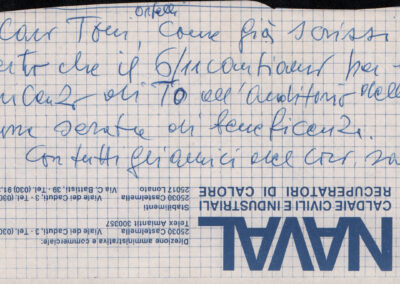 Ortelli
Caro Toni, Come già scrissi
che il 6/11 cantiamo per
di TO all'Auditorio della
una serata di beneficenza.
Con tutti gli amici del coro
NAVAL
CALDAIE CIVILI E INDUSTRIALI
RECUPERATORI DI CALORE
Direzione amministrativa e commerciale:
25030 Castelmella - Viale dei Caduti, 3 - Tel. (030)
Telex Amiantit 300357
Stabilimenti
25030 Castelmella - Viale dei Caduti, 3 - Tel. (030)
25017 Lonato - Via Battisti, 39, Tel. (030) 91